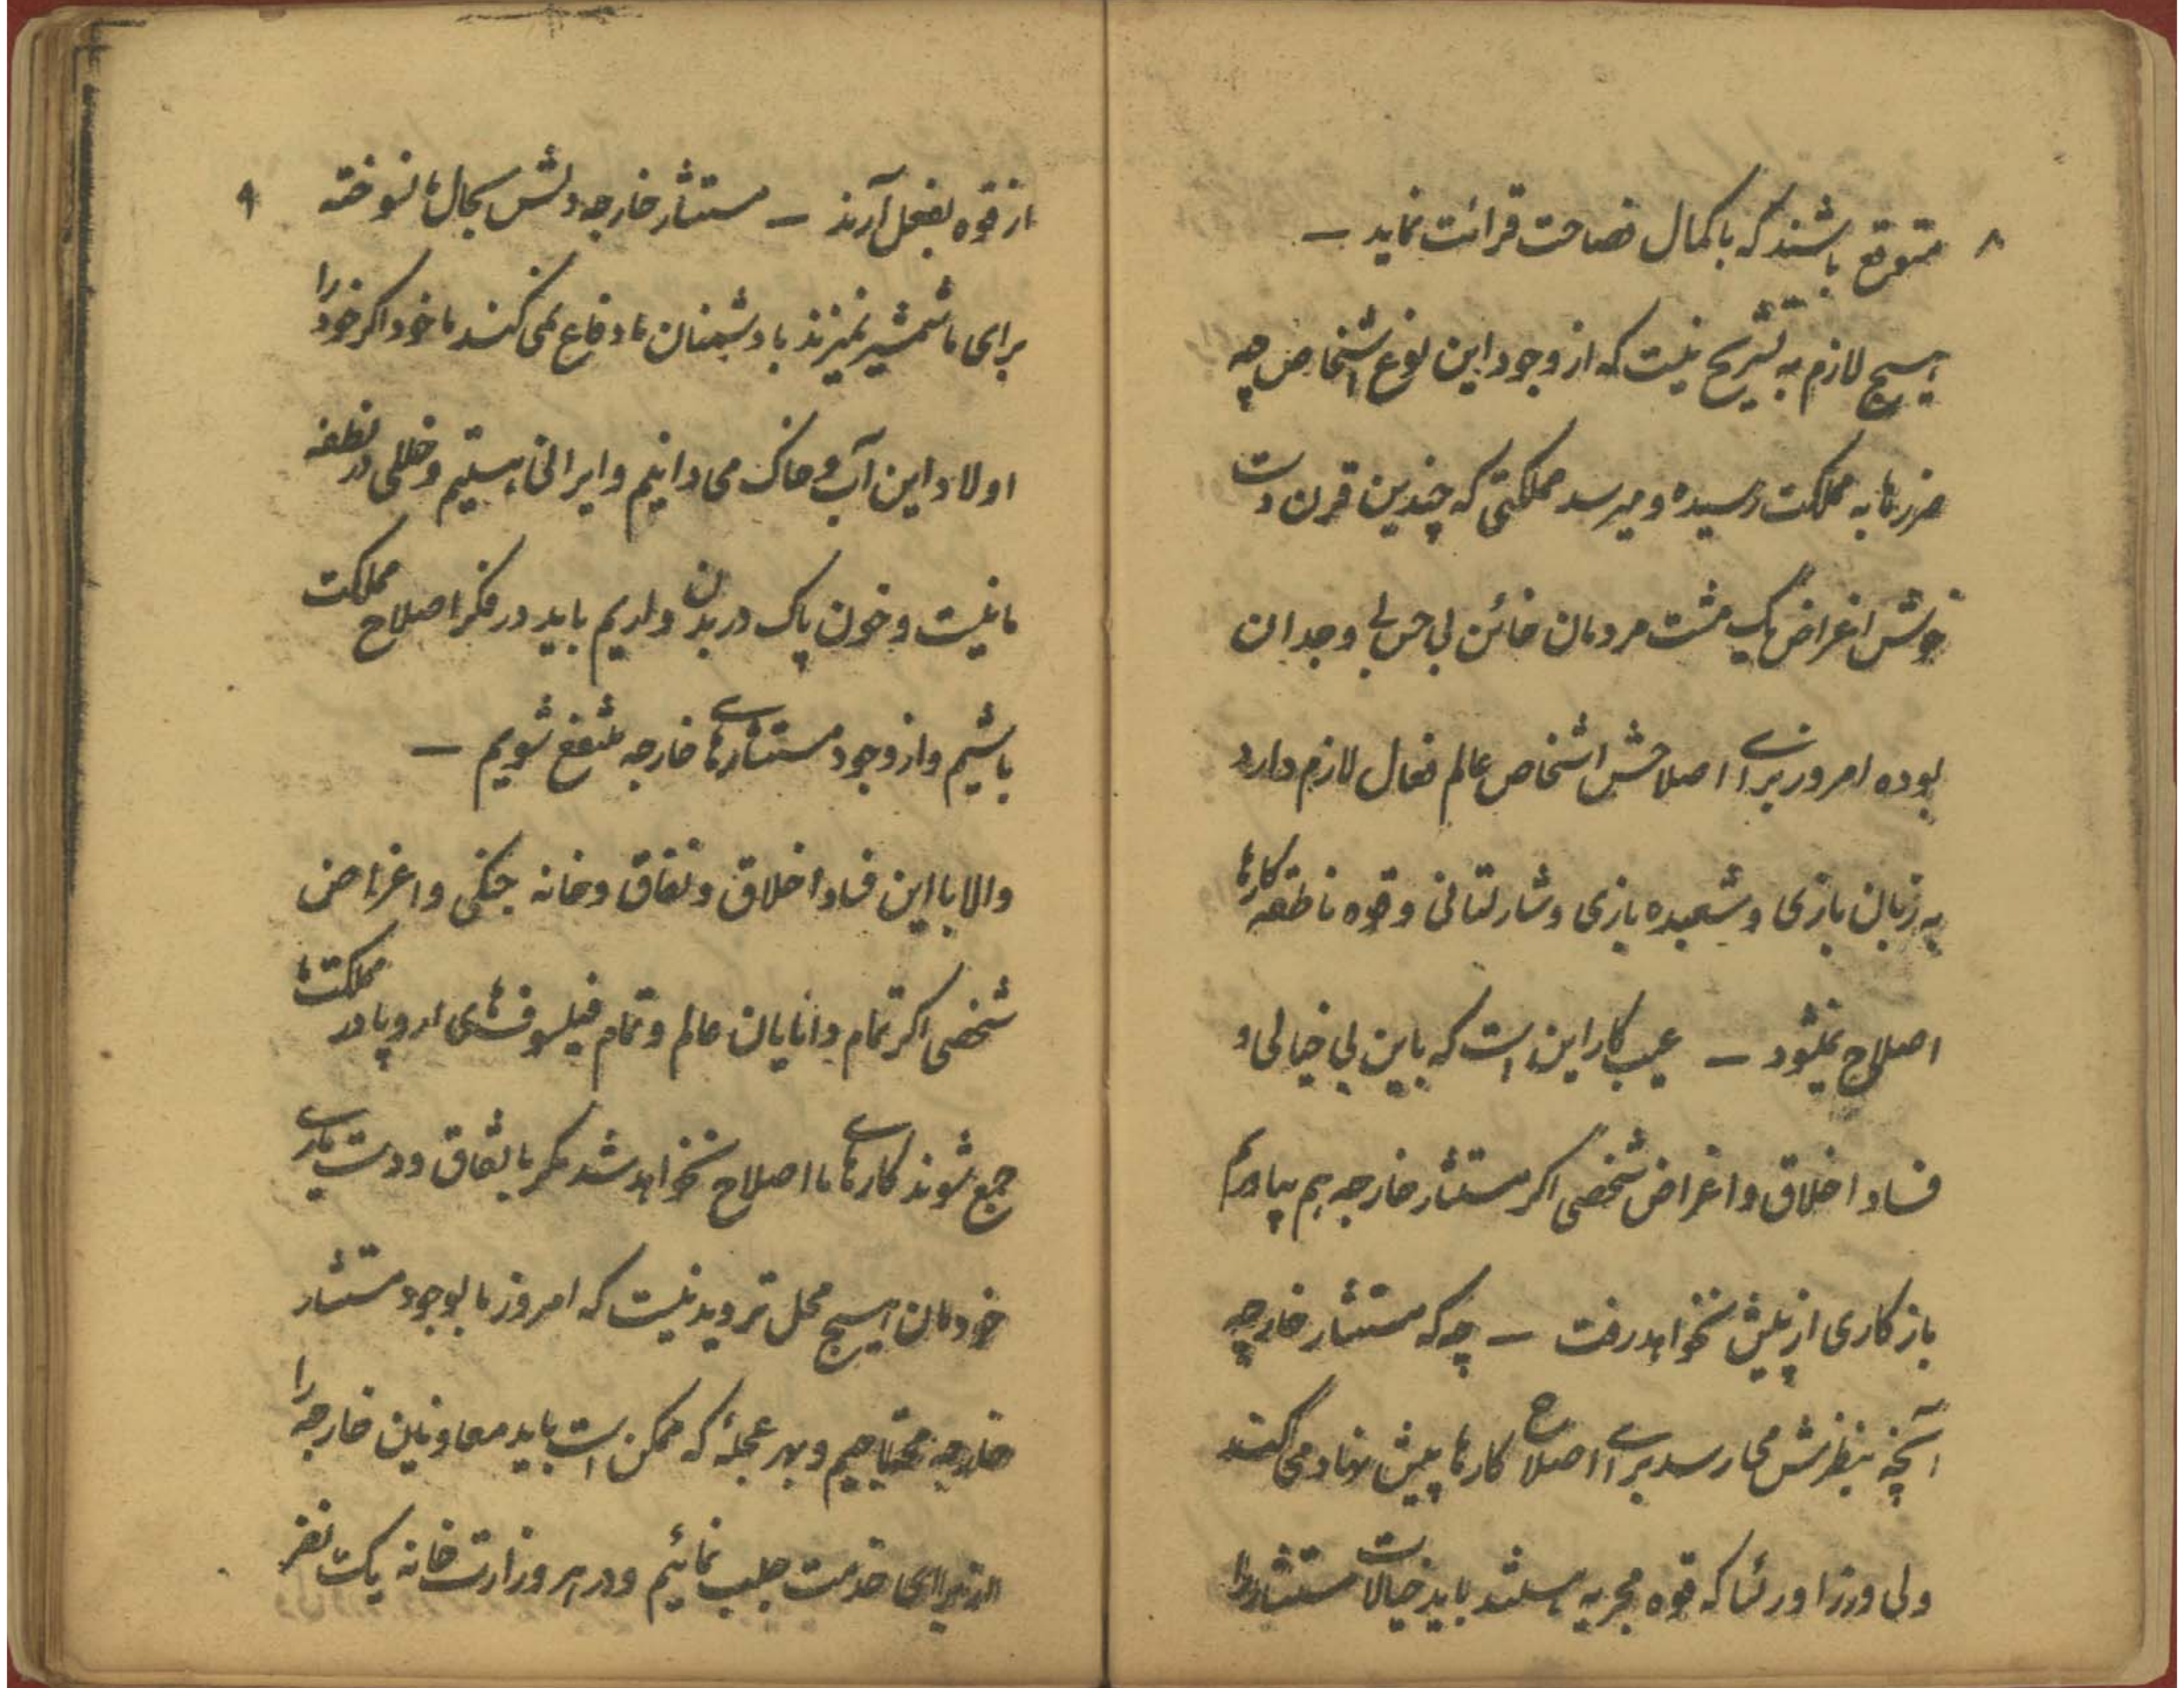 ۸
متوقع باشند که با کمال فصاحت قرائت نماید —
هیچ لازم به تشریح نیست که از وجود این نوع اشخاص چه
ضررها به مملکت رسیده و میرسد مملکتی که چندین قرن دست
خوش اغراض یک مشت مردمان خائن بی حس بی وجدان
بوده امروز برای اصلاحش اشخاص عالم فعال لازم دارد
به زبان بازی و شعبده بازی و شارلتانی و قوه ناطقه کارها
اصلاح نمیشود — عیب کار این است که باین بی خیالی و
فساد اخلاق و اغراض شخصی اگر مستشار خارجه هم بیاوریم
باز کاری از پیش نخواهد رفت — چه که مستشار خارجه
آنچه بنظرش می رسد برای اصلاح کارها پیش نهاد می کند
ولی وزرا و رؤسا که قوه مجریه هستند باید خیالات مستشار را
۹
از قوه بفعل آرند — مستشار خارجه دلش بحال ما نسوخته
برای ما شمشیر نمیزند با دشمنان ما دفاع نمی کند ما خود اگر خود را
اولاد این آب و خاک می دانیم و ایرانی هستیم و خللی در نطفه
ما نیست و خون پاک در بدن داریم باید در فکر اصلاح مملکت
باشیم و از وجود مستشارهای خارجه منتفع شویم —
والا با این فساد اخلاق و نفاق و خانه جنگی و اغراض
شخصی اگر تمام دانایان عالم و تمام فیلسوفهای اروپا در مملکت ما
جمع شوند کارهای ما اصلاح نخواهد شد مگر باتفاق و دست یاری
خودمان هیچ محل تردید نیست که امروز ما بوجود مستشار
خارجه محتاجیم و بهر عجلهٔ که ممکن است باید معاونین خارجه را
از برای خدمت جلب نمائیم و در هر وزارت خانه یک نفر